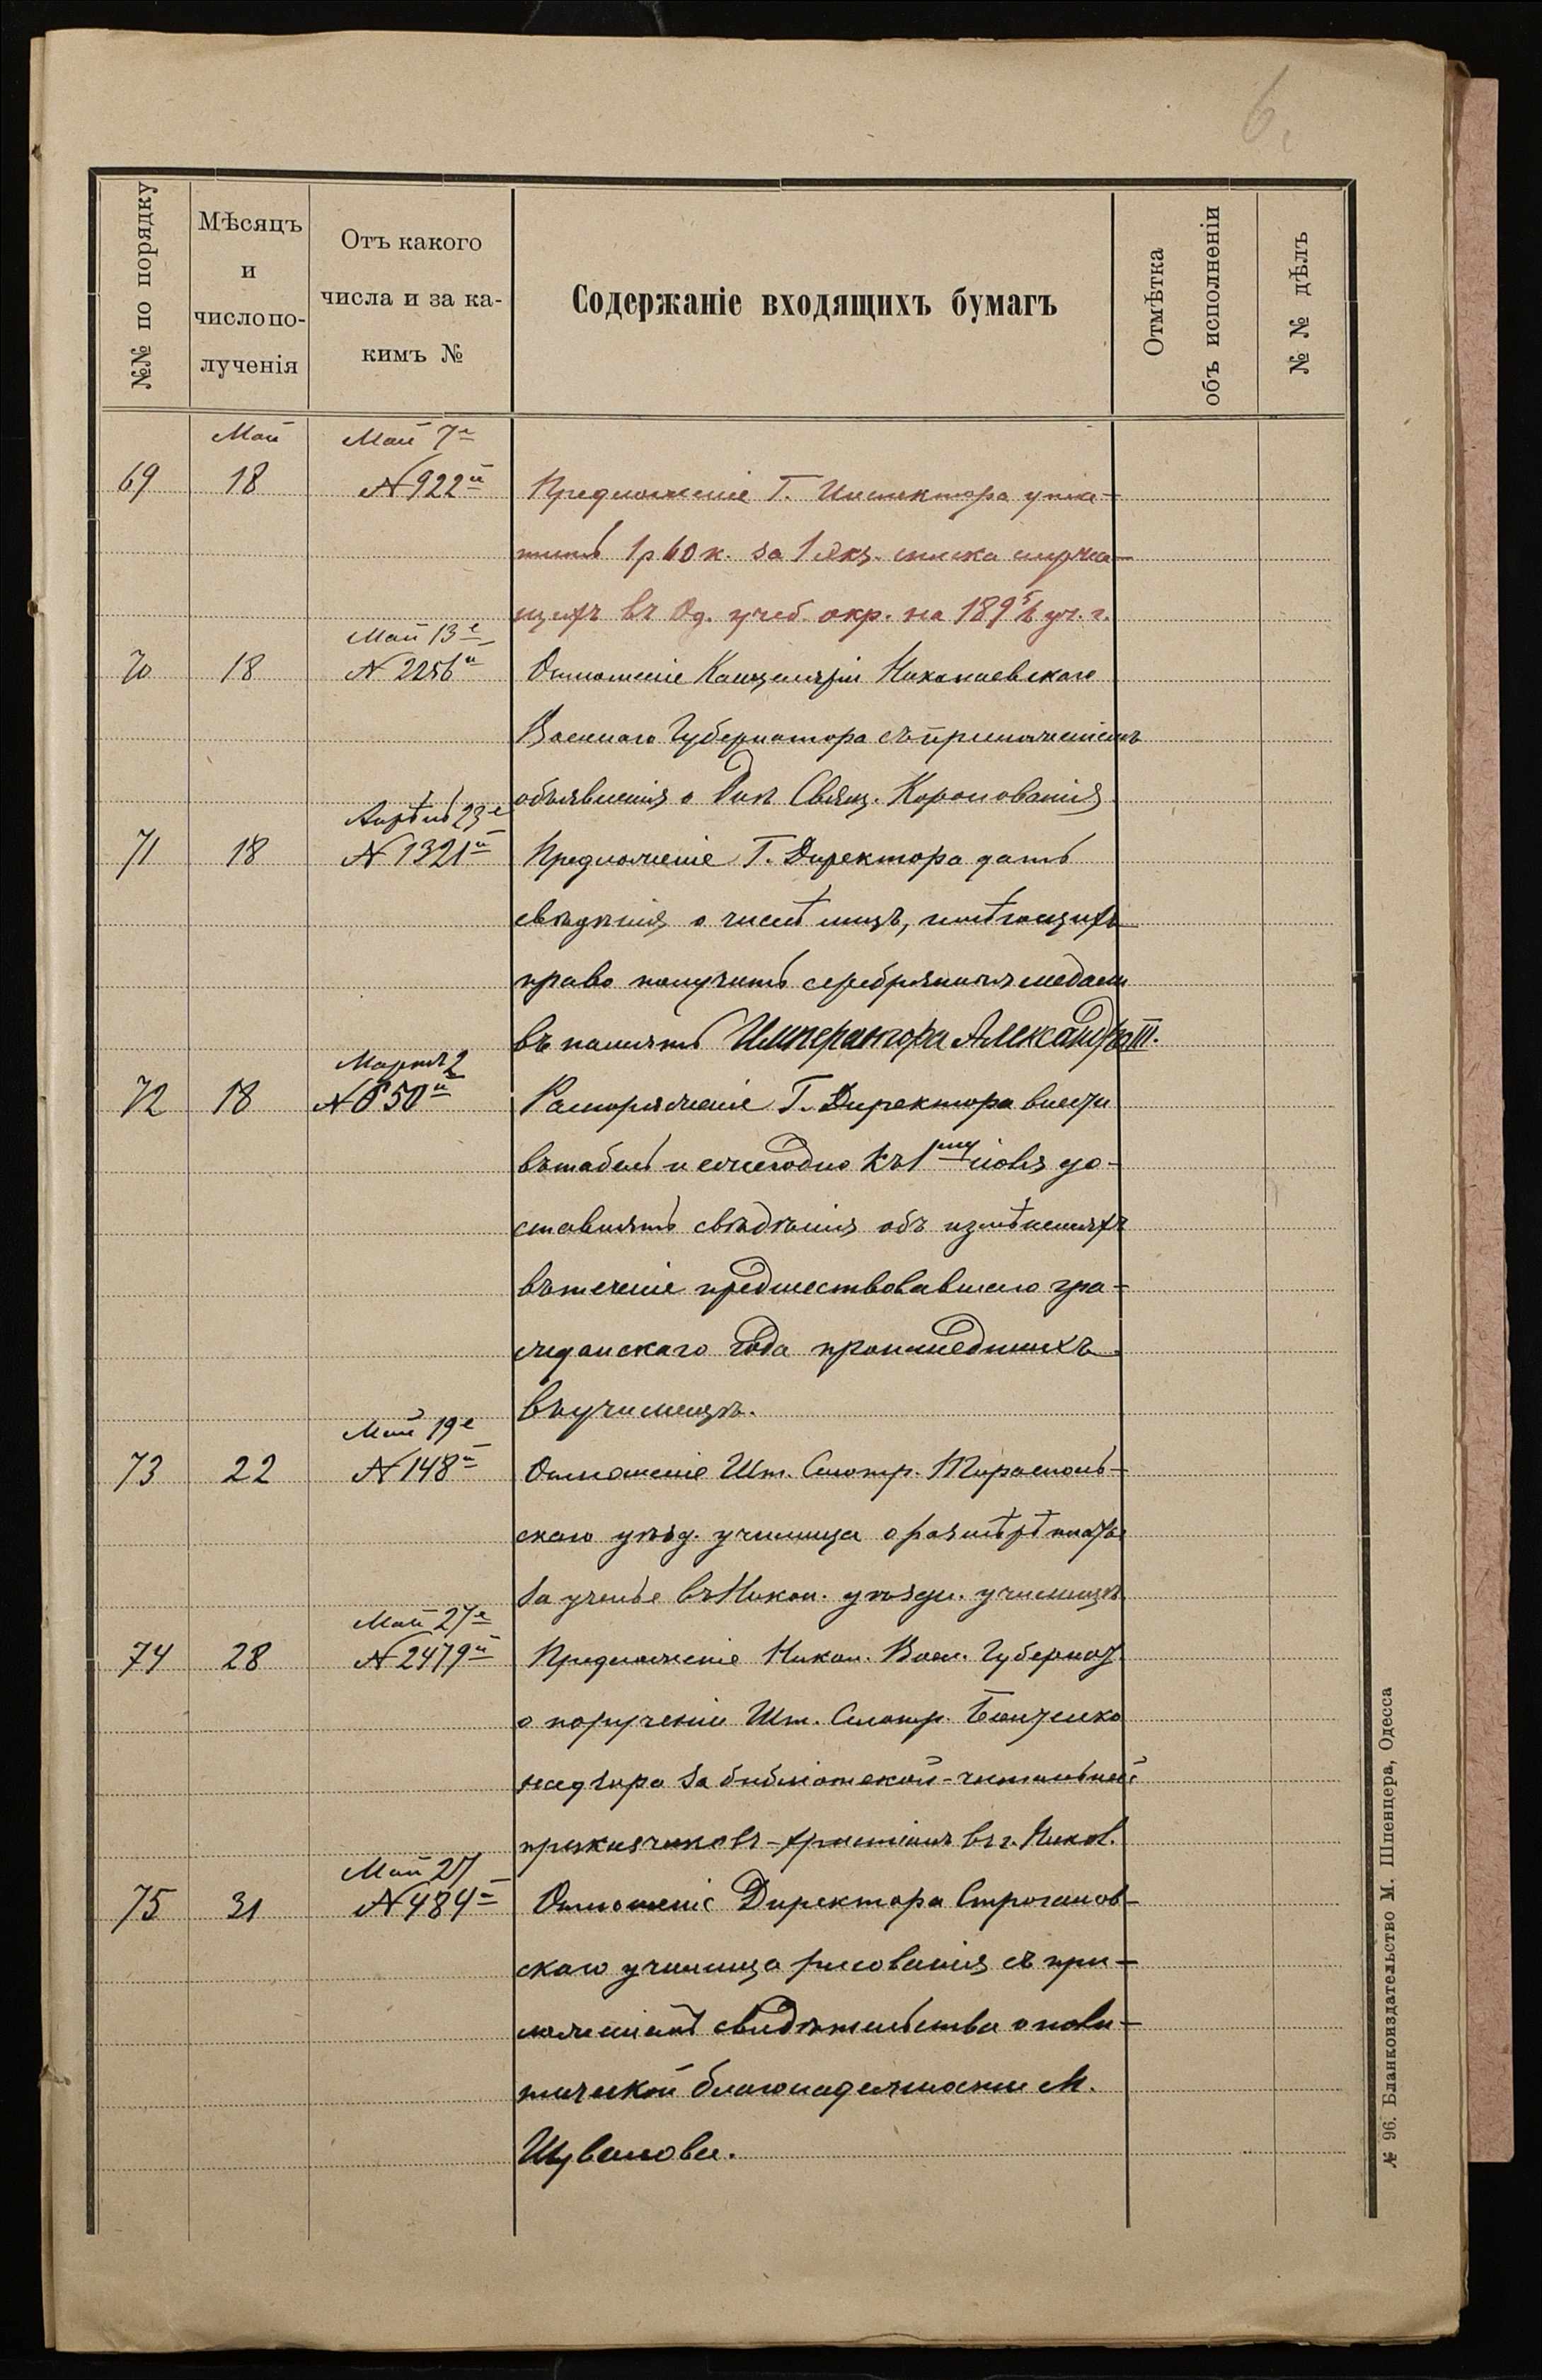 6.
№№ по порядку
Мѣсяцъ
и
число по-
лученія
Отъ какого
числа и за ка-
кимъ №
Содержаніе входящихъ бумагъ
Отмѣтка
объ исполненіи
№ № дѣлъ
Май Май 7е
69 18 № 922й Предложеніе Г. Инспектора упла-
тить 1р 60 к. за 1 экз. списка служа-
щихъ въ Од. учеб. окр. на 1895/6 уч. г.
Май 13е
70 18 № 2256й Отношеніе Канцеляріи Николаевскаго
Военнаго Губернатора съ приложеніемъ
объявленія о Дне Свящ. Коронованія
Апрѣль 23е
71 18 № 1321й Предложеніе Г. Директора дать
свѣдѣнія о числѣ лицъ, имѣющихъ
право получить серебряныя медали
въ память Императора Александра III.
Мартъ 2
72 18 № 850й Распоряженіе Г. Директора внести
въ табель и ежегодно къ 1му
ставлять свѣдѣнія объ измѣненіяхъ
въ теченіе предшествовавшаго гра-
жданскаго года происшедшихъ
въ училищѣ.
Май 19е
73 22 № 148й Отношеніе Шт. Смотр. Тирасполь-
скаго уѣзд. училища о размѣрѣ платы
за ученье въ Никол. уѣздн. училищѣ
Май 27е
74 28 № 2479й Предложеніе Никол. Воен. Губернат.
о порученіи Шт. Смотр.
надзора за библіотекой-читальней
приказчиковъ-христіанъ въ г. Никол.
Май 27
75 31 № 484й Отношеніе Директора Строганов-
скаго училища рисованія съ при-
ложеніемъ свидѣтельства о поли-
тической благонадежности М.
Шувалова.
№ 96. Бланкоиздательство М. Шпенцера, Одесса